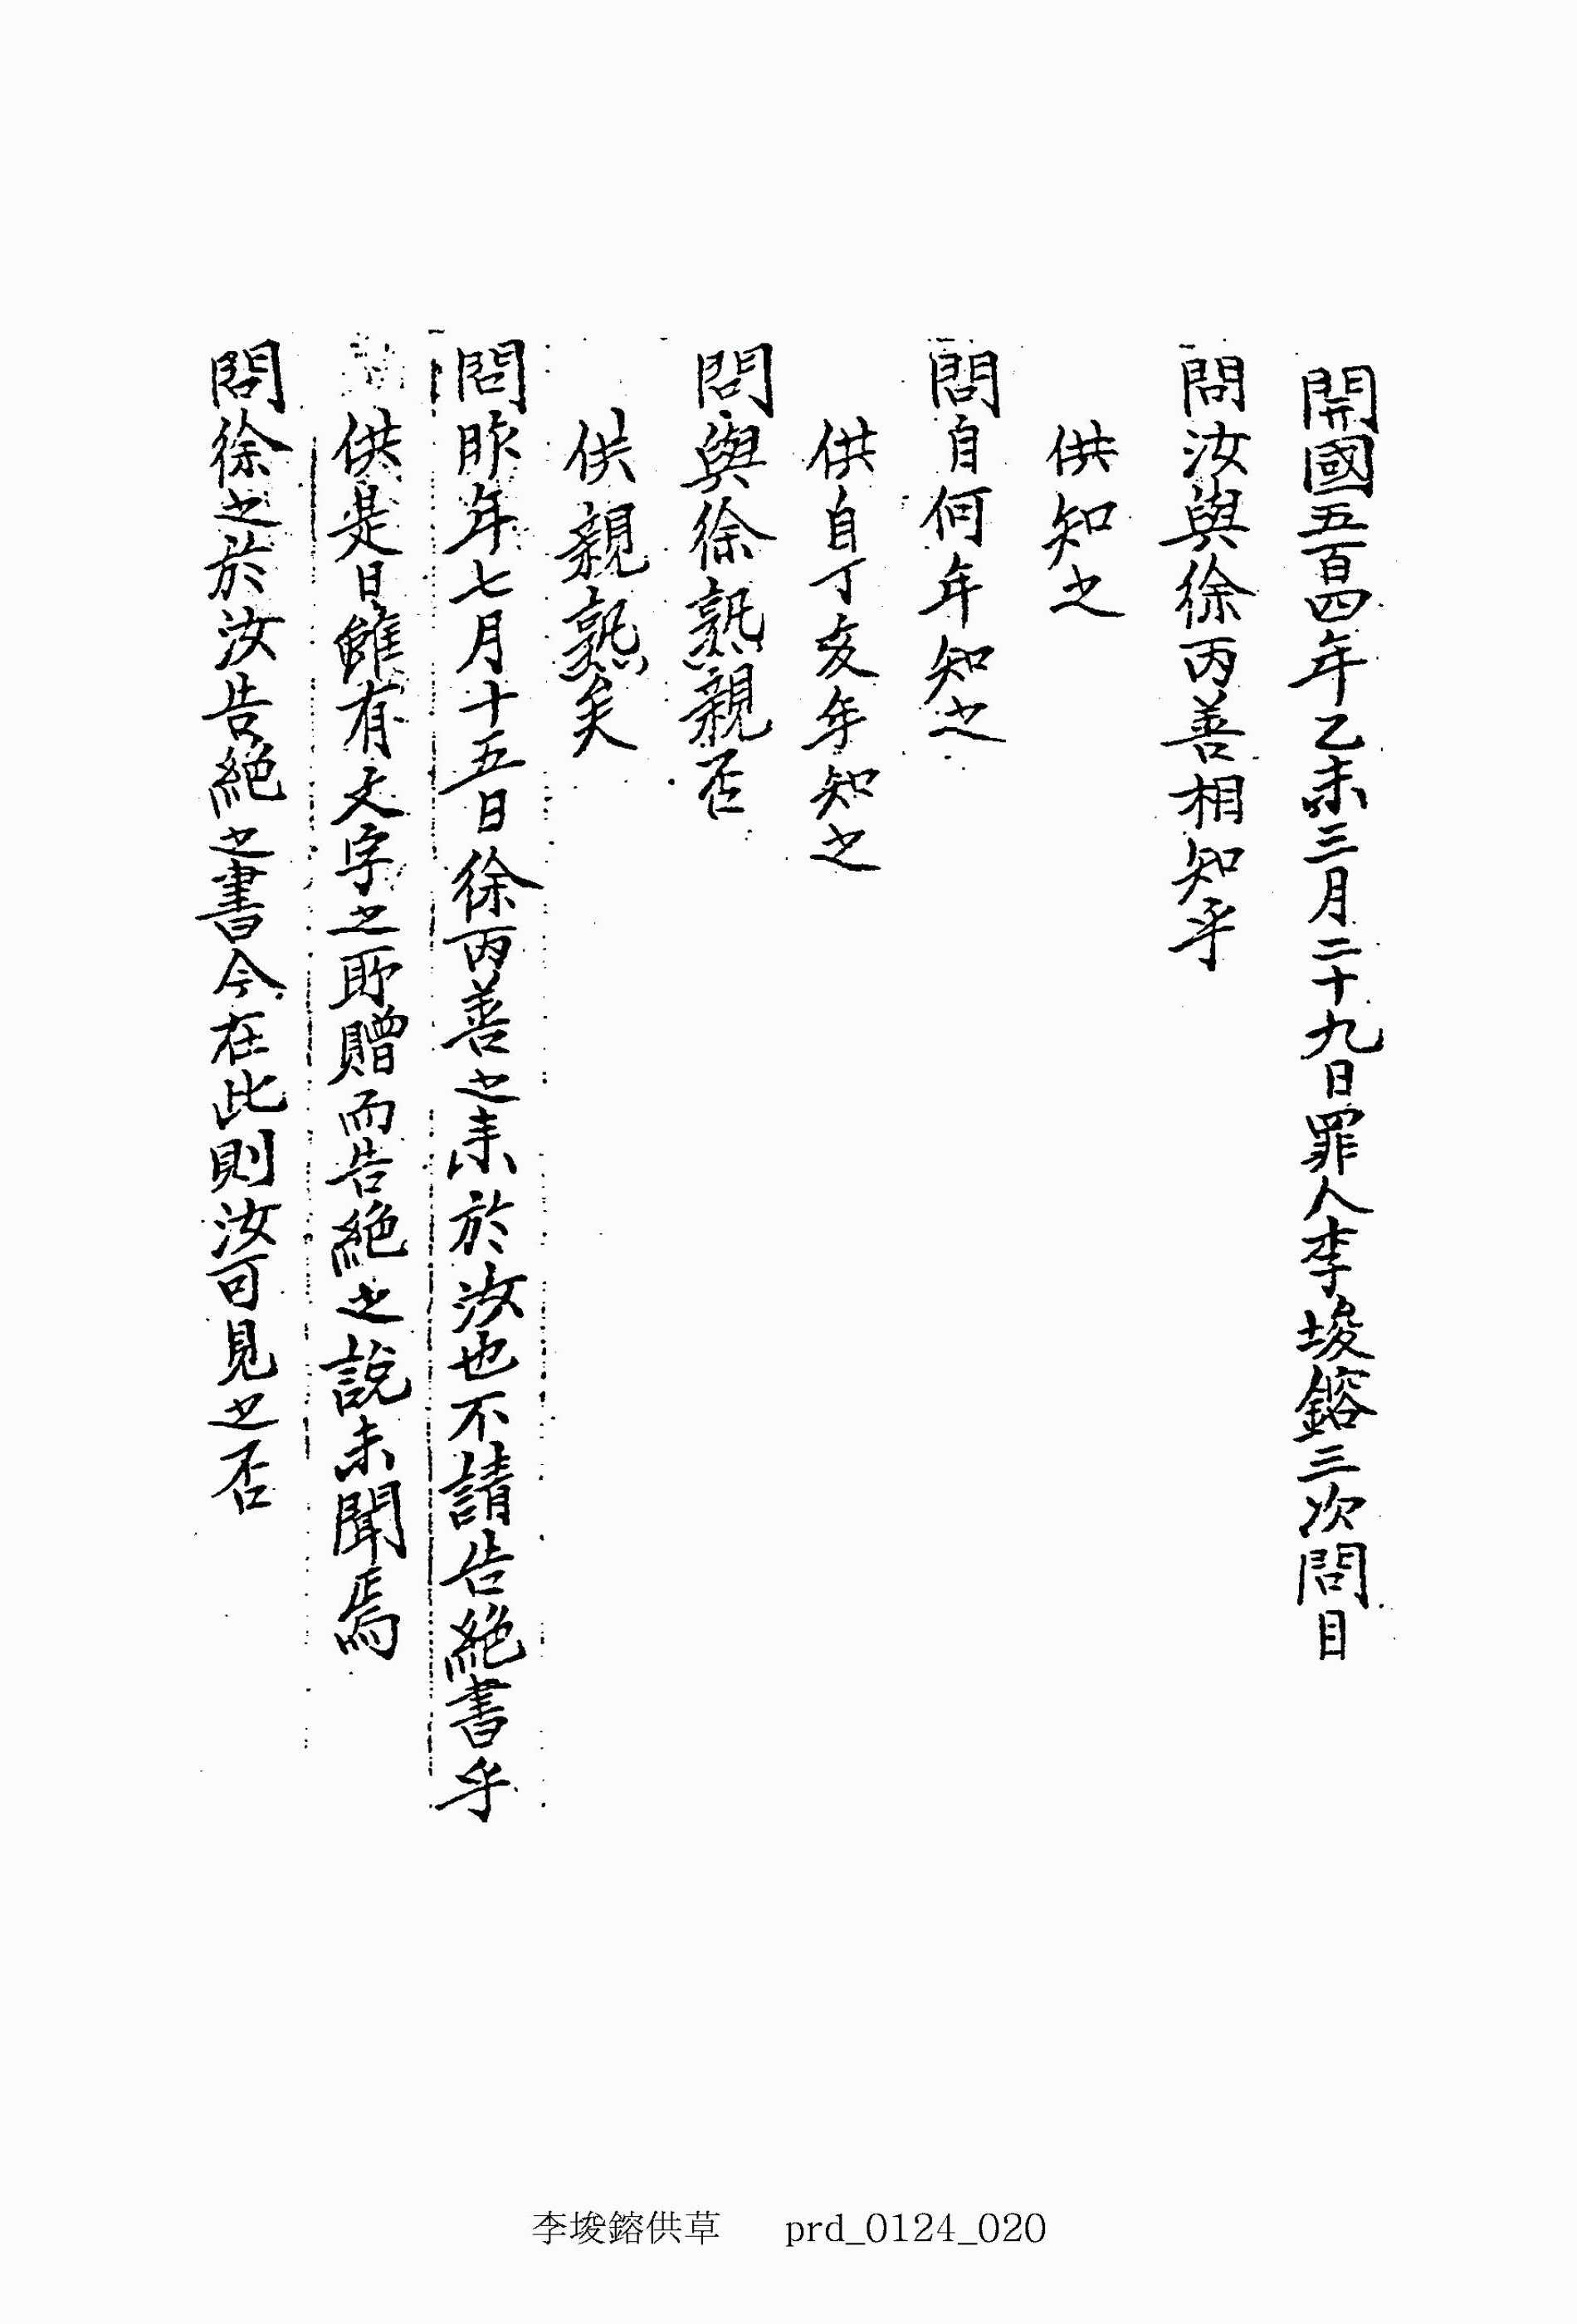 開國五百四年乙未三月二十九日罪人李埈鎔三次問目
問汝與徐丙善相知乎
供知之
問自何年知之
供自丁亥年知之
問與徐熟親否
供親熟矣
問昨年七月十五日徐丙善之来於汝也不請告絶書乎
供是日雖有文字之所贈而告絶之說未聞焉
問徐之於汝告絶之書今在此則汝可見之否
李埈鎔供草 prd_0124_020